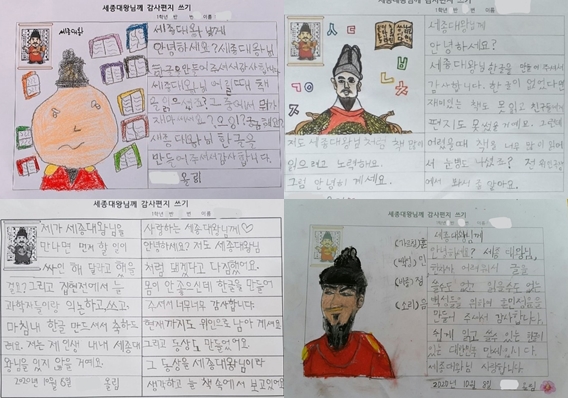 세종대왕님께 감사편지 쓰기
1학년 반 번 이름
세종대왕
세종대왕님께
안녕하세요? 세종대왕님
한글을 만들어주셔서 감사합니다
세종대왕님 어릴때 책
을 읽으셨죠? 그 중에서 뭐가
세종대왕님 한글을
만들어주셔서감사합니다.
올림
세종대왕님께 감사편지 쓰기
1학년 반 번 이름
세종대왕님께
안녕하세요?
세종대왕님 한글을 만들어 주셔서
감사합니다. 한글이 없었다면
재미있는 책도 못 읽고 친구들에게
편지도 못 썼을 거예요. 그런데
어렸을때 책을 너무 많이 읽어
서 눈병도 나셨죠? 전 위인전
에서 봐서 좀 알아요.
저도 세종대왕님처럼 책 많이
읽으려고 노력해요.
그럼 안녕히 계세요.
세종대왕님께 감사편지 쓰기
1학년 반 번 이름
사랑하는 세종대왕님께♡
안녕하세요? 저도 세종대왕님
처럼 돼겠다고 다짐했어요.
몸이 안 좋으신데 한글을 만들어
주셔서 너무너무 감사합니다.
현재까지도 위인으로 남아 계셔요
그리고 동상도 만들었어요.
그 동상을 세종대왕님이라
생각하고 늘 책 속에서 보고있어요
제가 세종대왕님을
만나면 먼저 할 일이
싸인 해 달라고 했을
걸요? 그리고 집현전에서 늘
과학자들이랑 의논하고, 쓰고,
마침내 한글 만드셔서 축하드
려요. 저는 제 인생 내내 세종대
왕님을 잊지 않을 거예요.
2020년 10월 6일 올림
세종대왕님께 감사편지 쓰기
1학년 반 번 이름
(가르칠)훈
(백성)민
(바를)정
(소리)음
세종대왕님께
안녕하세요? 세종대왕님,
쓸수도 없고 읽을수도 없는
백성들을 위하여 훈민정음을
만들어 주셔서 감사합니다.
쉽게 읽고 쓰수 있는 한글이
있는 대한민국 만세입니다.
세종대왕님 사랑합니다
2020년 10월 8일 올림